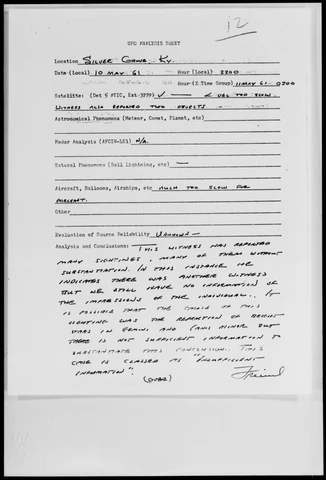 12
UFO ANALYSIS SHEET
Location SILVER GROVE KY.
Date (Local) 10 MAY 61 Hour (Local) 2200
Hour (Z Time Group) 11 MAY 61 0300
Satellite: (Det 5 ATIC, Ext-3279) ✓ VEL TOO SLOW.
WITNESS ALSO REPORTED TWO OBJECTS.
Astronomical Phenomena (Meteor, Comet, Planet, etc)
Radar Analysis (AFCIN-4E1) N/A.
Natural Phenomena (Ball Lightning, etc) —
Aircraft, Balloons, Airships, etc MUCH TOO SLOW FOR
AIRCRAFT.
Other
Evaluation of Source Reliability UNKNOWN
Analysis and Conclusions: THIS WITNESS HAS REPORTED
MANY SIGHTINGS, MANY OF THEM WITHOUT
SUBSTANTIATION. IN THIS INSTANCE HE
INDICATES THERE WAS ANOTHER WITNESS
BUT WE STILL HAVE NO INFORMATION OF
THE IMPRESSIONS OF THE INDIVIDUAL. IT
IS POSSIBLE THAT THE CAUSE OF THIS
SIGHTING WAS THE REFRACTION OF BRIGHT
STARS IN GEMINI AND CANIS MINOR BUT
THERE IS NOT SUFFICIENT INFORMATION TO
SUBSTANTIATE THIS CONCLUSION. THIS
CASE IS CLASSED AS "INSUFFICIENT
INFORMATION".
(OVER)